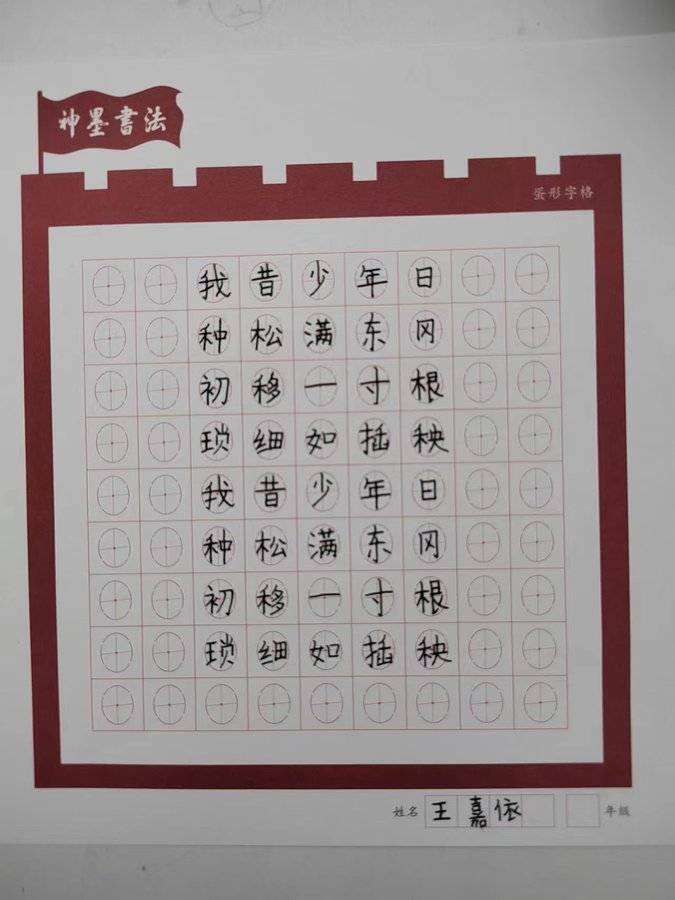 神墨書法
蛋形字格
我昔少年日
种松满东冈
初移一寸根
琐细如插秧
我昔少年日
种松满东冈
初移一寸根
琐细如插秧
姓名 王嘉依 年级